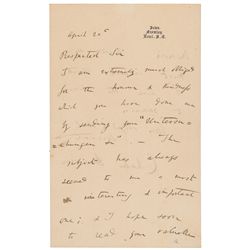 Down,
Farnborough,
Kent. S.E.
April 20th
Respected Sir
I am extremely much obliged
for the honour & kindness
which you have done me
by sending your
The
subject has always
seemed to me a most
interesting & important
one; & I hope soon
to read your valuable